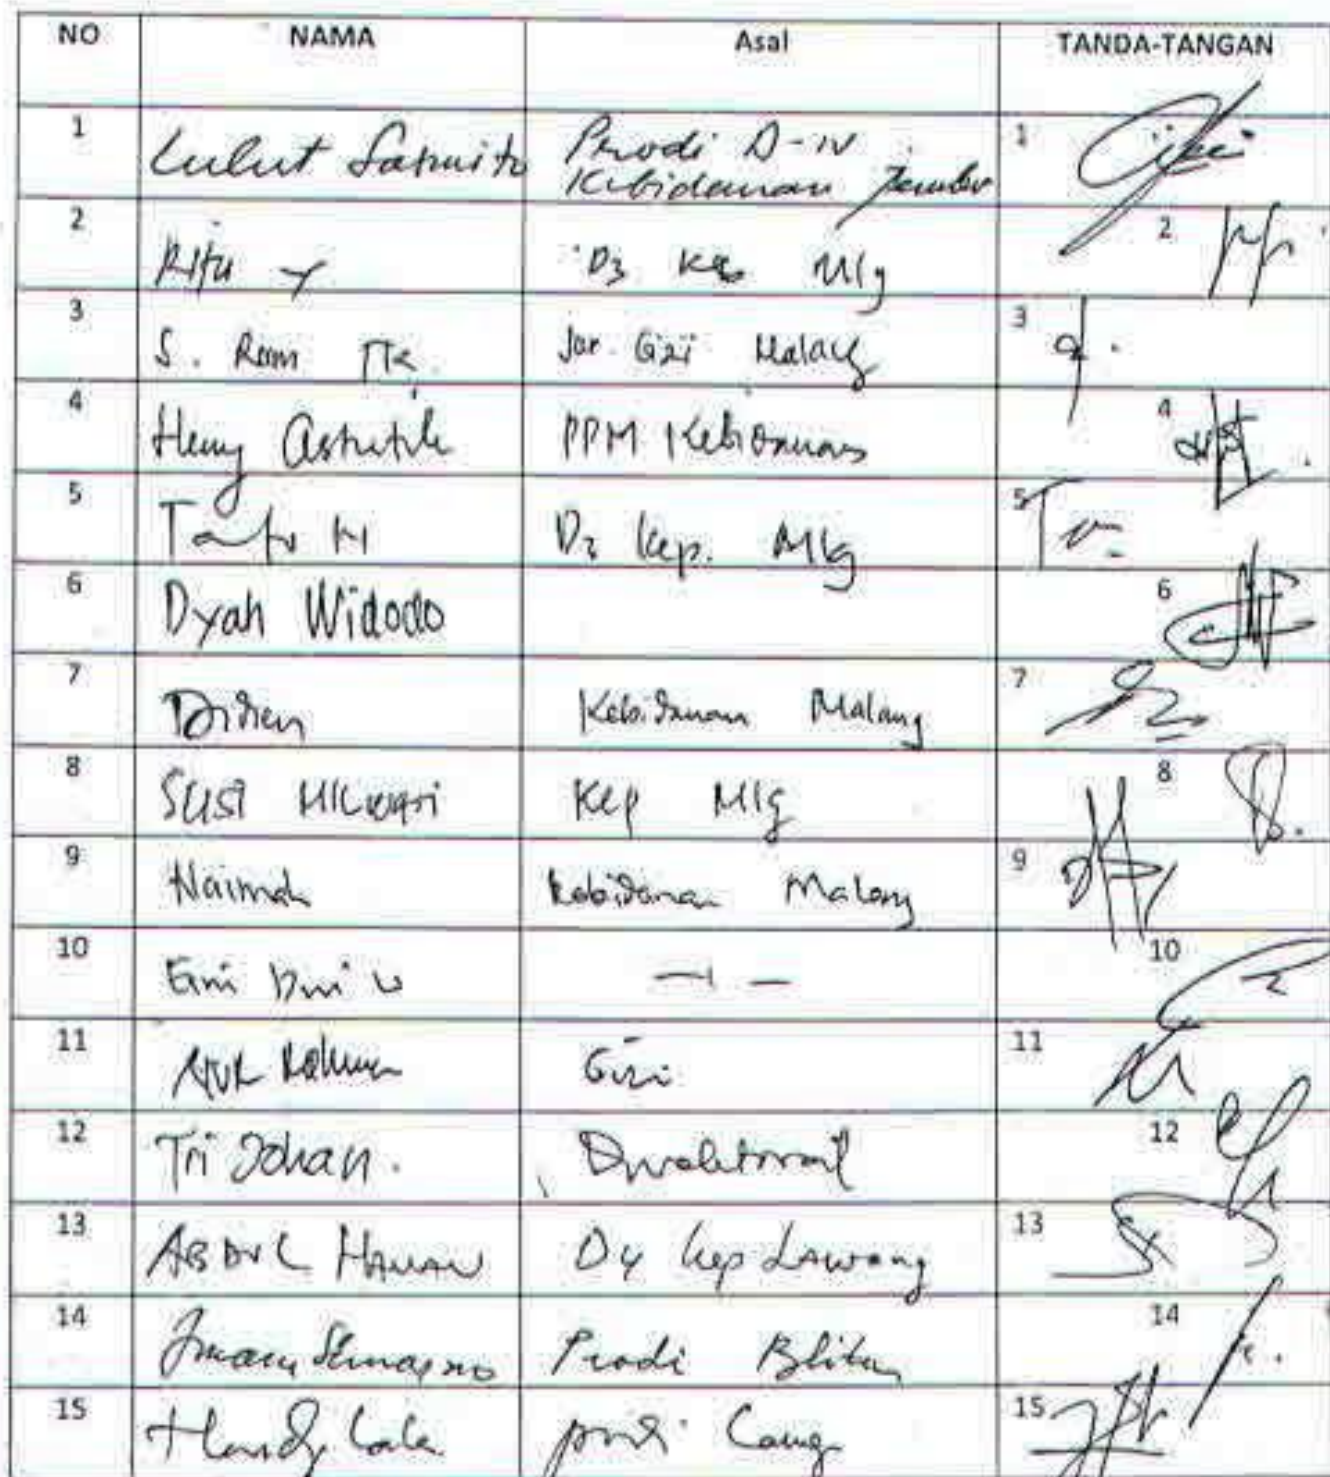 NO NAMA Asal TANDA-TANGAN
1 Lulut Sasmito Prodi D-IV 1
Kebidanan Jember
2 D3 Kep Mlg 2
3 S. Jur. Gizi Malang 3
4 Heny Astutik PPM Kebidanan 4
5 D3 Kep. Mlg 5
6 Dyah Widodo 6
7 Didien Kebidanan Malang 7
8 Susi Milwati Kep Mlg 8
9 Naimah Kebidanan Malang 9
10 Erni Dwi W 10
11 Nur Rahman Gizi 11
12 Tri Johan. Direktorat 12
13 ABDUL HANAN D4 Kep Lawang 13
14 Imam Sunarno Prodi Blitar 14
15 15